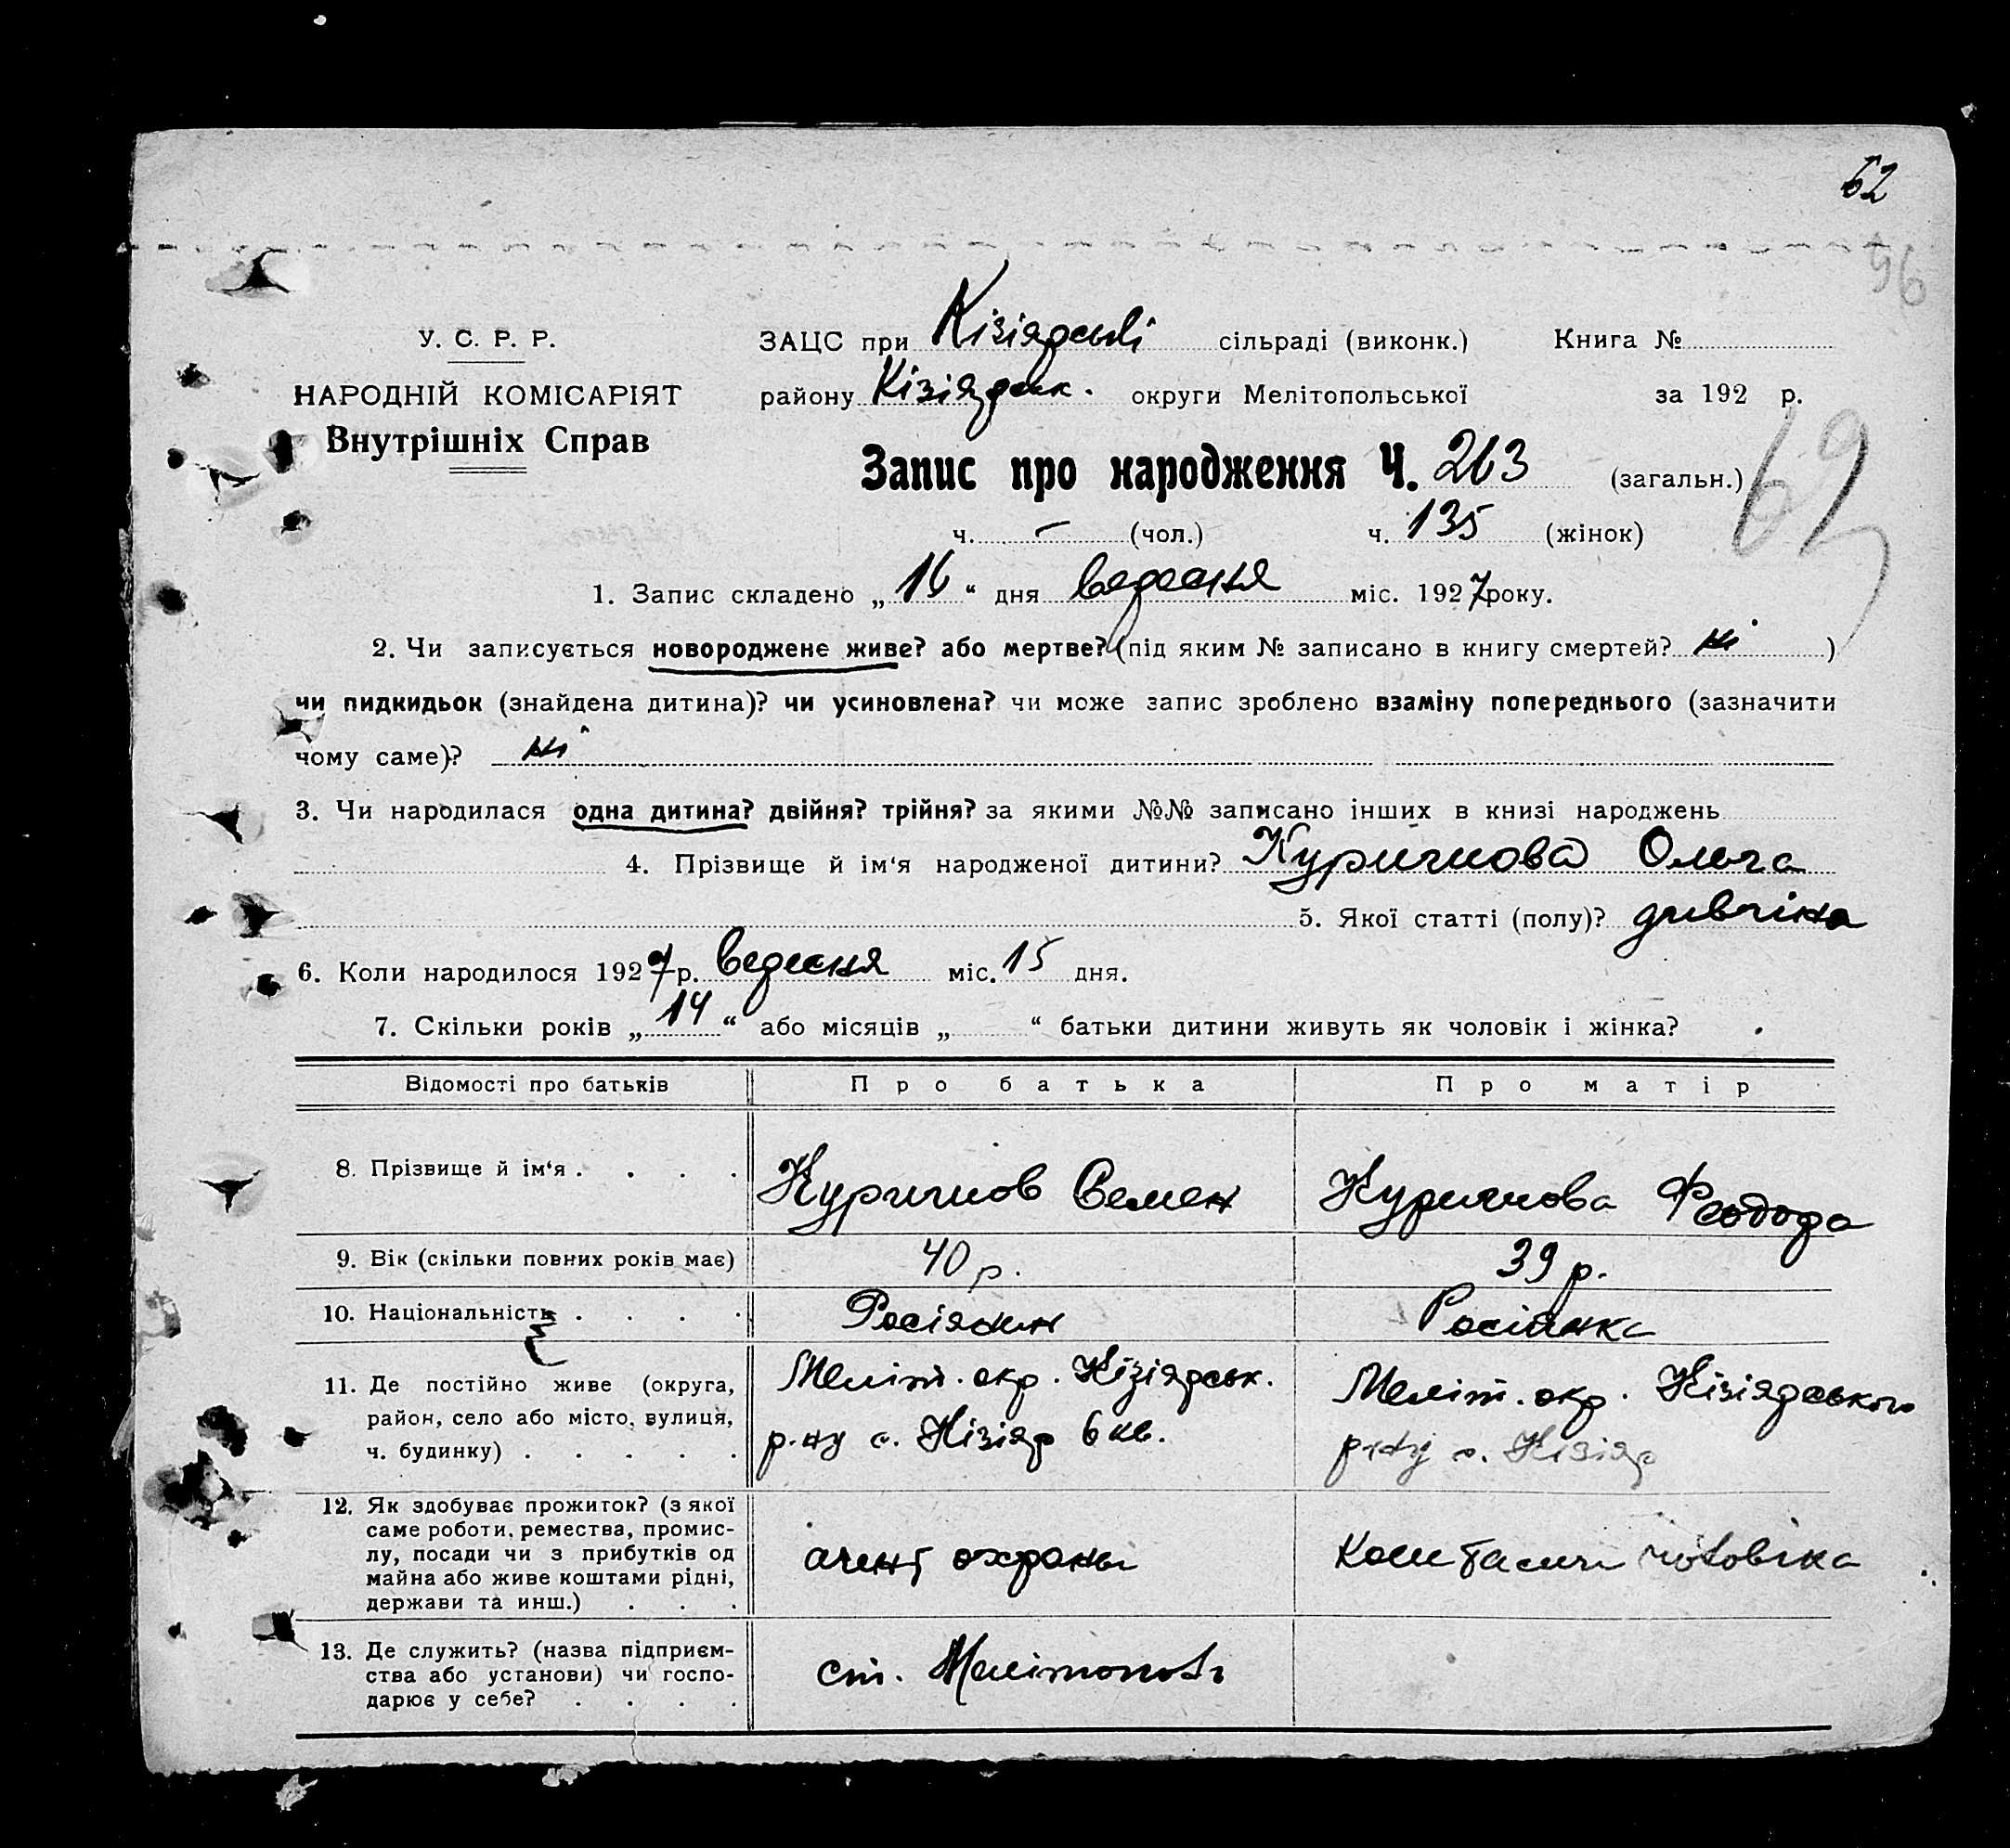 62
96
У. С. Р. Р.
НАРОДНІЙ КОМІСАРІЯТ
Внутрішніх Справ
ЗАЦС при Кізіярські сільраді (виконк.) Книга №
району Кізіярськ. округи Мелітопольської за 192 р.
Запис про народження Ч. 263 (загальн.)
69
ч. – (чол.) ч. 135 (жінок)
1. Запис складено „ 16 “ дня вересня міс. 1927 року.
2. Чи записується новороджене живе? або мертве? (під яким № записано в книгу смертей? ні )
чи пидкидьок (знайдена дитина)? чи усиновлена? чи може запис зроблено взаміну попереднього (зазначити
чому саме)? ні
3. Чи народилася одна дитина? двійня? трійня? за якими №№ записано інших в книзі народжень
4. Прізвище й ім‘я народженої дитини? Куричнова Ольга
5. Якої статті (полу)? дивчіна
6. Коли народилося 1927 р. вересня міс. 15 дня.
7. Скільки років „ 14 “ або місяців „ “ батьки дитини живуть як чоловік і жінка?
Відомості про батьків Про батька Про матір
8. Прізвище й ім‘я . . . . Куричнов Семен Куричнова Феодора
9. Вік (скільки повних років має) 40 р. 39 р.
10. Національність . . . . Росіянин Росіянка
11. Де постійно живе (округа,
район, село або місто, вулиця,
ч. будинку) . . . . .
Меліт. окр. Кізіярськ.
р-ну с. Кізіяр 6 кв.
Меліт. окр. Кізіярського
р-ну с. Кізіяр
12. Як здобуває прожиток? (з якої
саме роботи, ремества, промис-
лу, посади чи з прибутків од
майна або живе коштами рідні,
держави та инш.) . . .
агент охраны
коштами чоловіка
13. Де служить? (назва підприєм-
ства або установи) чи госпо-
дарює у себе? . . . .
ст. Мелітополь